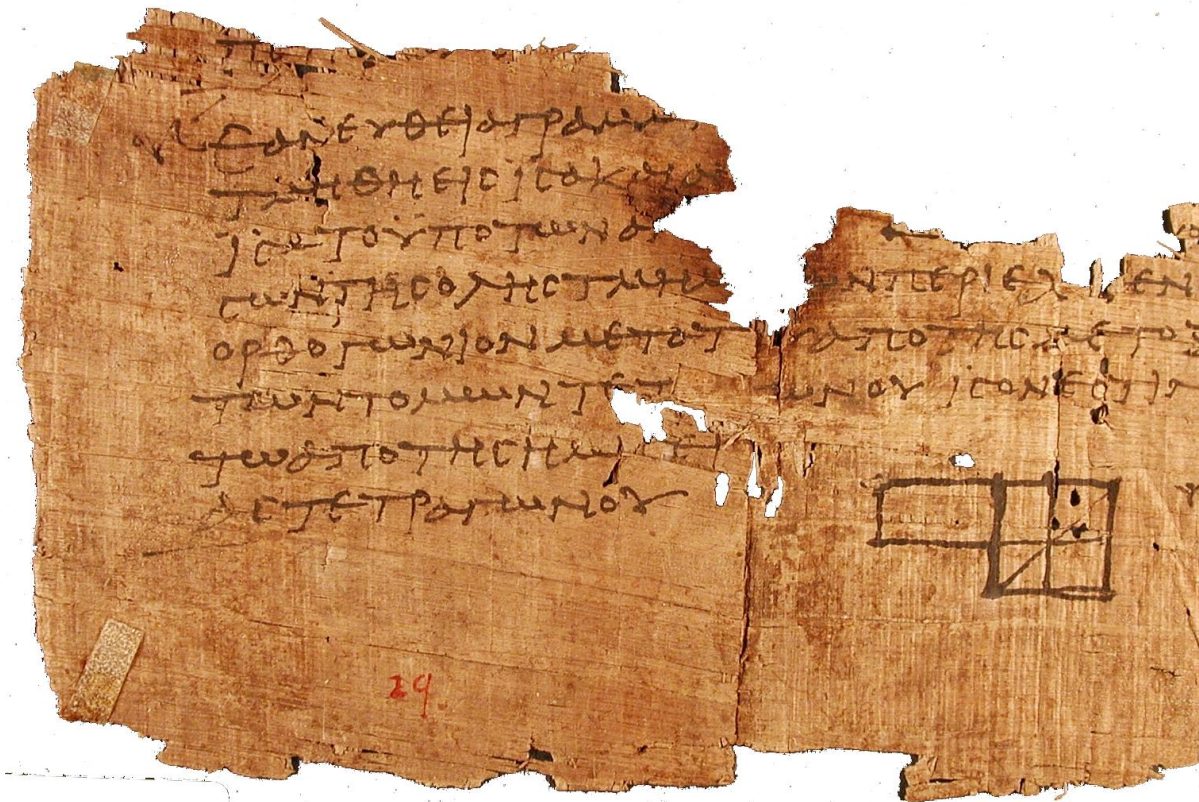 ΕΑΝ ΕΥΘΕΙΑ ΓΡΑΜΜ
ΤΜΗΘΗ ΕΙϹ ΙϹΑ ΚΑΙ Α
ΙϹΑ ΤΟ ΥΠΟ ΤΩΝ Α
ϹΩΝ ΤΗϹ ΟΛΗϹ ΤΜΗΜ ΩΝ ΠΕΡΙΕΧ ΕΝ
ΟΡΘΟΓΩΝΙΟΝ ΜΕΤΑ ΤΟΥ ΑΠΟ ΤΗϹ ΜΕΤΟΞ
ΤΩΝ ΤΟΜΩΝ ΤΕΤ ΩΝΟΥ ΙϹΟΝ ΕϹΤΙΝ
ΤΩ ΑΠΟ ΤΗϹ ΗΜΙϹΕΙ
ΑϹ ΤΕΤΡΑΓΩΝΟΥ
29